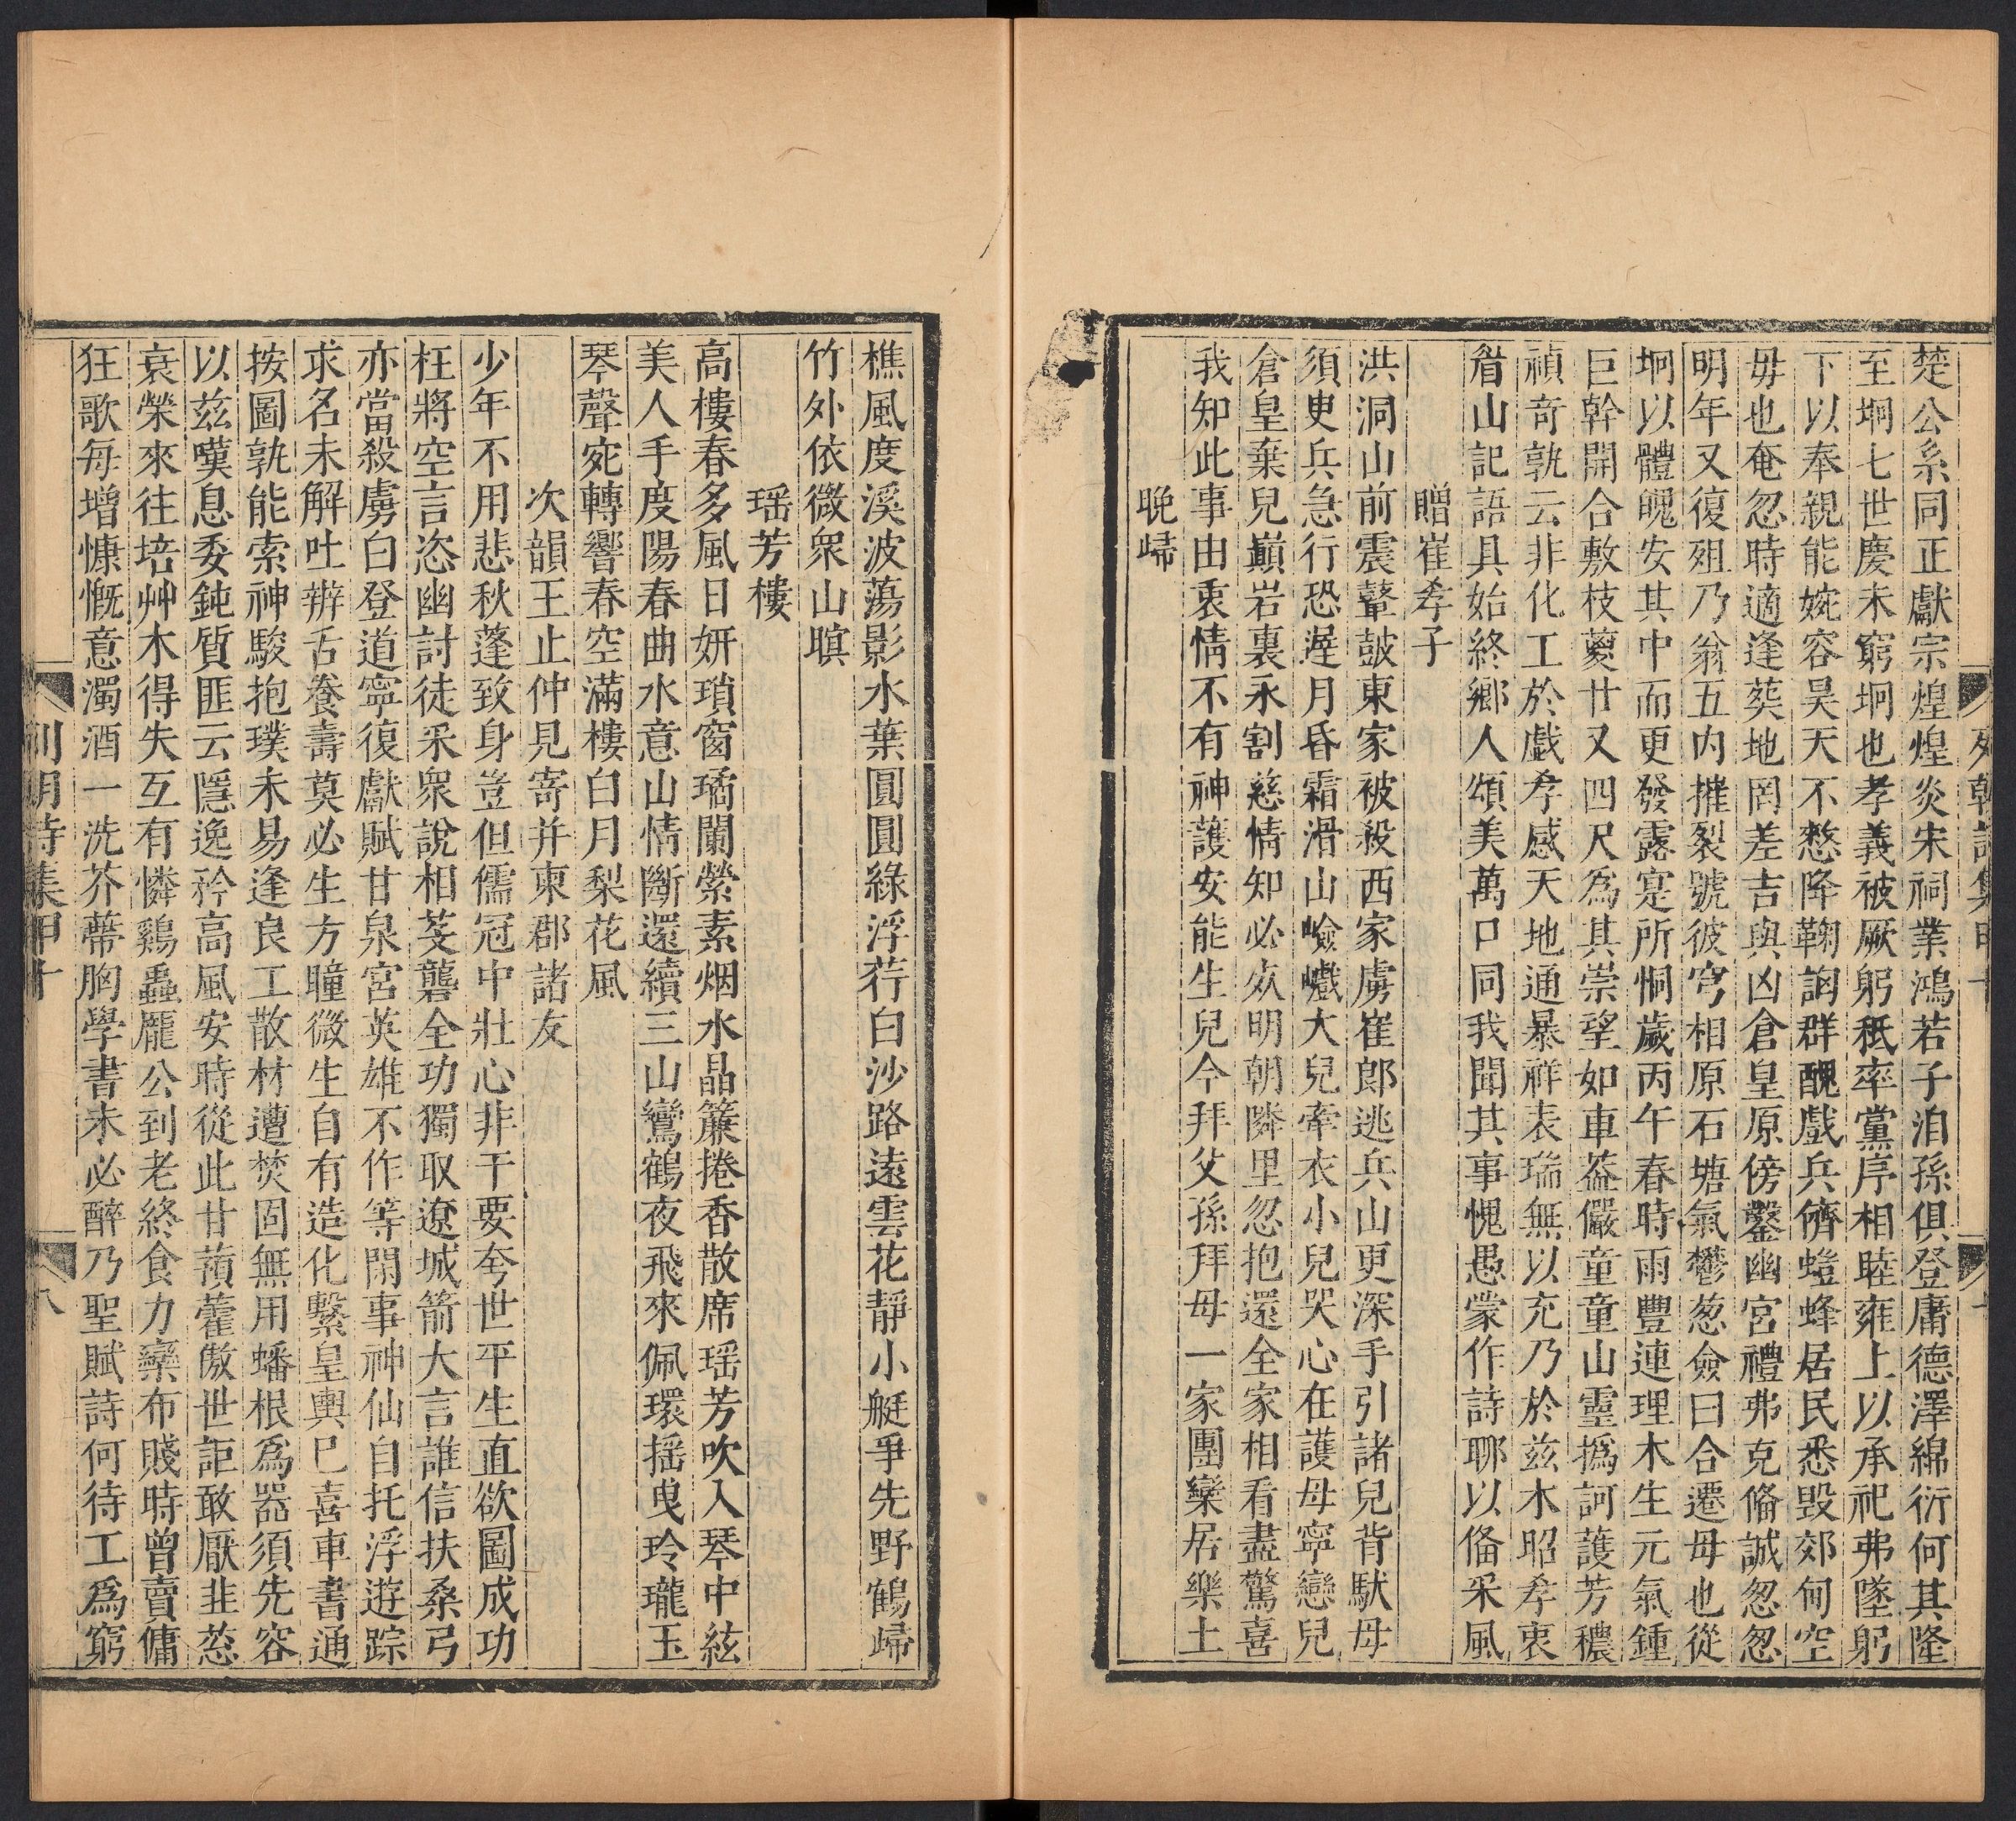 楚公系同正獻宗煌煌炎宋祠業鴻若子洎孫俱登庸德澤綿衍何其隆
至坰七世慶未窮坰也孝義被厥躬秪率黨序相睦雍上以承祀弗墜躬
下以奉親能婉容昊天不憗降鞠訩群醜戲兵儕螘蜂居民悉毀郊甸空
毋也奄忽時適逢葬地罔差吉與凶倉皇原傍鑿幽宮禮弗克俻誠怱怱
明年又復殂乃翁五內摧裂號彼穹相原石塘氣鬱葱僉曰合遷毋也從
坰以體魄安其中而更發露寔所恫歲丙午春時雨豐連理木生元氣鍾
巨幹開合敷枝藑廿又四尺為其崇望如車葢儼童童山靈撝訶護芳穠
禎奇孰云非化工於戲孝感天地通暴祥表瑞無以充乃於兹木昭孝衷
眉山記語具始終鄉人頌美萬口同我聞其事愧愚蒙作詩聊以俻采風
贈崔孝子
洪洞山前震鼙皷東家被殺西家虜崔郎逃兵山更深手引諸兒背馱母
須臾兵急行恐遲月昏霜滑山嶮巇大兒牽衣小兒哭心在護母寧戀兒
倉皇棄兒巔岩裏永割慈情知必死明朝隣里忽抱還全家相看盡驚喜
我知此事由衷情不有神護安能生兒今拜父孫拜母一家團欒居樂土
晚歸
樵風度溪波蕩影水葉圓圓綠浮荇白沙路遠雲花靜小艇爭先野鶴歸
竹外依微衆山暝
瑶芳樓
高樓春多風日妍瑣窗璚闌縈素烟水晶簾捲香散席瑶芳吹入琴中絃
美人手度陽春曲水意山情斷還續三山鸞鶴夜飛來佩環摇曳玲瓏玉
琴聲宛轉響春空滿樓白月梨花風
次韻王止仲見寄并柬郡諸友
少年不用悲秋蓬致身豈但儒冠中壯心非干要夸世平生直欲圖成功
枉將空言恣幽討徒采衆說相芟礱全功獨取遼城箭大言誰信扶桑弓
亦當殺虜白登道寧復獻賦甘泉宮英雄不作等閒事神仙自托浮遊踪
求名未解吐辨舌養壽莫必生方瞳微生自有造化繫皇輿已喜車書通
按圖孰能索神駿抱璞未易逢良工散材遭焚固無用蟠根爲器須先容
以兹嘆息委鈍質匪云隱逸矜高風安時從此甘蘋藿傲世詎敢厭韭菍
衰榮來往培艸木得失互有憐鷄蟲龐公到老終食力欒布賤時曾賣傭
狂歌每增慷慨意濁酒一洗芥蔕胸學書未必醉乃聖賦詩何待工爲窮
列朝詩集甲十
八